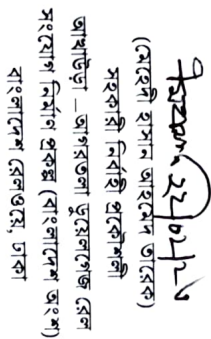 (মেহেদী হাসান আহমেদ তারেক)
সহকারী নির্বাহী প্রকৌশলী
আখাউড়া – আগরতলা ডুয়েলগেজ রেল
সংযোগ নির্মাণ প্রকল্প (বাংলাদেশ অংশ)
বাংলাদেশ রেলওয়ে, ঢাকা